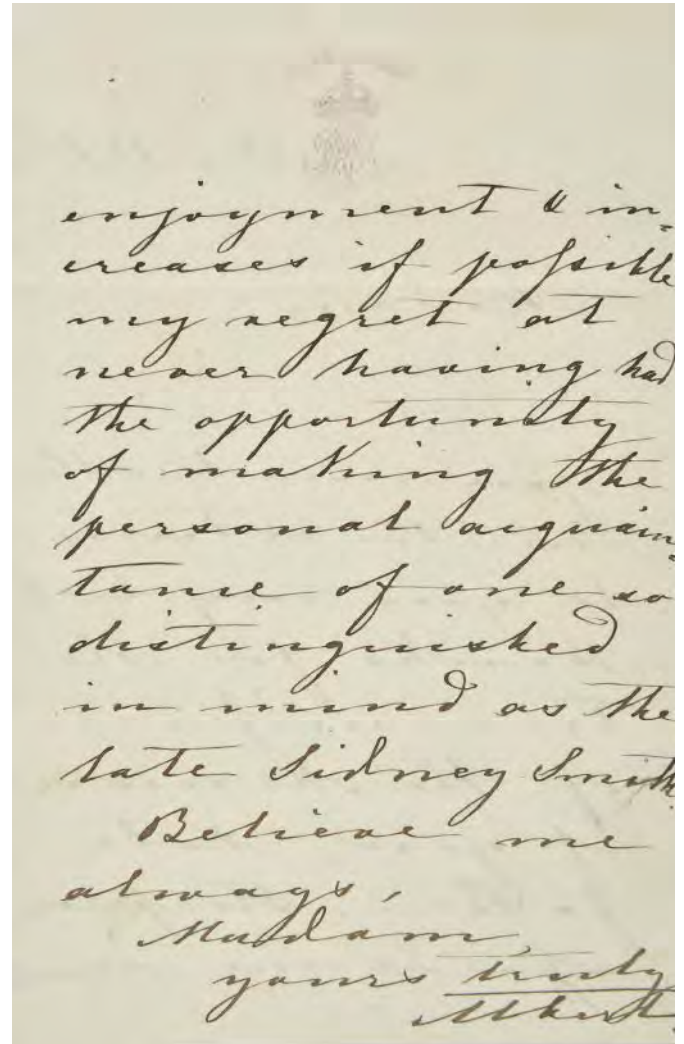 enjoyment & in-
creases if possible
my regret at
never having had
the opportunity
of making the
personal acquain-
tance of one so
distinguished
in mind as the
late Sidney Smith.
Believe me
always,
Madam,
yours truly
Albert.